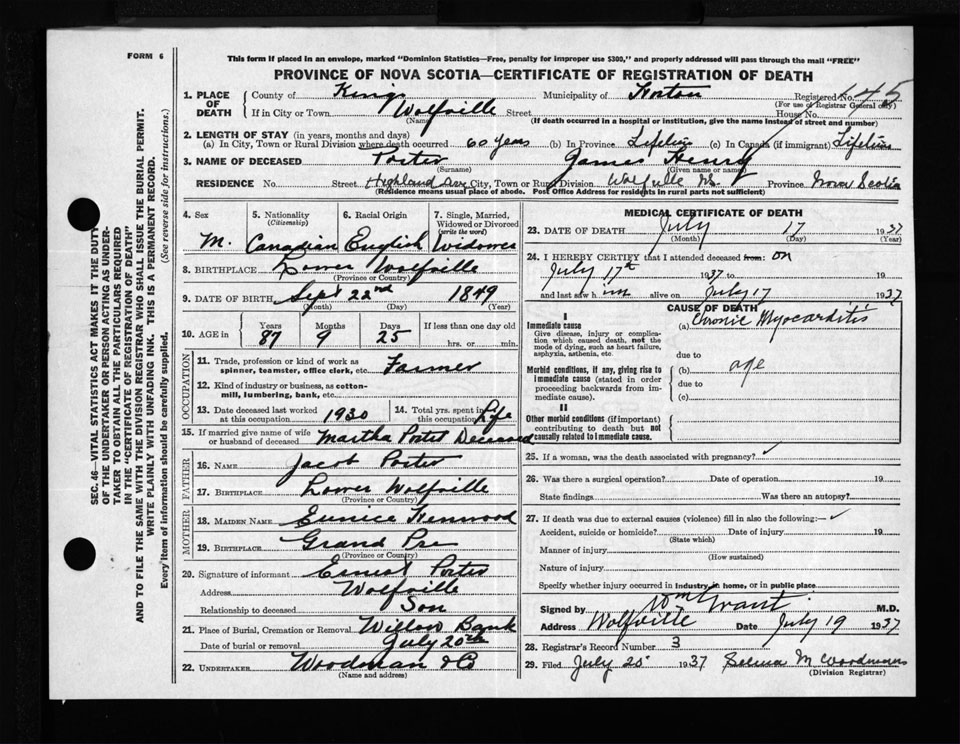 FORM 6
This form if placed in an envelope, marked "Dominion Statistics—Free, penalty for improper use $300," and properly addressed will pass through the mail "FREE"
PROVINCE OF NOVA SCOTIA—CERTIFICATE OF REGISTRATION OF DEATH
SEC. 46—VITAL STATISTICS ACT MAKES IT THE DUTY
OF THE UNDERTAKER OR PERSON ACTING AS UNDER-
TAKER TO OBTAIN ALL THE PARTICULARS REQUIRED
IN THE "CERTIFICATE OF REGISTRATION OF DEATH"
AND TO FILE THE SAME WITH THE DIVISION REGISTRAR WHO SHALL ISSUE THE BURIAL PERMIT.
WRITE PLAINLY WITH UNFADING INK. THIS IS A PERMANENT RECORD.
Every item of information should be carefully supplied. (See reverse side for instructions.)
1. PLACE OF DEATH County of Kings Municipality of Horton Registered No. 445
(For use of Registrar General only)
If in City or Town Wolfville Street House No.
(Name) (If death occurred in a hospital or institution, give the name instead of street and number)
2. LENGTH OF STAY (in years, months and days)
(a) In City, Town or Rural Division where death occurred 60 years (b) In Province Lifetime (c) In Canada (if immigrant) Lifetime
3. NAME OF DECEASED Porter James Henry
(Surname) (Given name or names)
RESIDENCE No. Street Highland Ave City, Town or Rural Division Wolfville NS Province Nova Scotia
(Residence means usual place of abode. Post Office Address for residents in rural parts not sufficient)
4. Sex 5. Nationality (Citizenship) 6. Racial Origin 7. Single, Married, Widowed or Divorced (write the word)
M. Canadian English Widower
8. BIRTHPLACE Lower Wolfville
(Province or Country)
9. DATE OF BIRTH Sept 22nd 1849
(Month) (Day) (Year)
10. AGE in Years Months Days If less than one day old
87 9 25 hrs. or min.
OCCUPATION
11. Trade, profession or kind of work as spinner, teamster, office clerk, etc. Farmer
12. Kind of industry or business, as cotton-mill, lumbering, bank, etc.
13. Date deceased last worked at this occupation 1930 14. Total yrs. spent in this occupation Life
15. If married give name of wife or husband of deceased Martha Porter Deceased
FATHER
16. NAME Jacob Porter
17. BIRTHPLACE Lower Wolfville
(Province or Country)
MOTHER
18. MAIDEN NAME Eunice Kenwood
19. BIRTHPLACE Grand Pre
(Province or Country)
20. Signature of informant Ernest Porter
Address Wolfville
Relationship to deceased Son
21. Place of Burial, Cremation or Removal Willow Bank
Date of burial or removal July 20th
22. UNDERTAKER Woodman & Co
(Name and address)
MEDICAL CERTIFICATE OF DEATH
23. DATE OF DEATH July 17 1937
(Month) (Day) (Year)
24. I HEREBY CERTIFY that I attended deceased from: on
July 17th 1937 to 19
and last saw him alive on July 17 1937
CAUSE OF DEATH
I
Immediate cause (a) Chronic Myocarditis
Give disease, injury or complication which caused death, not the mode of dying, such as heart failure, asphyxia, asthenia, etc.
due to
Morbid conditions, if any, giving rise to immediate cause (stated in order proceeding backwards from immediate cause).
(b) age
due to
(c)
II
Other morbid conditions (if important) contributing to death but not causally related to immediate cause.
25. If a woman, was the death associated with pregnancy?
26. Was there a surgical operation? Date of operation 19
State findings Was there an autopsy?
27. If death was due to external causes (violence) fill in also the following:—
Accident, suicide or homicide? Date of injury 19
(State which)
Manner of injury
(How sustained)
Nature of injury
Specify whether injury occurred in industry, in home, or in public place
Signed by Wm Grant M.D.
Address Wolfville Date July 19 1937
28. Registrar's Record Number 3
29. Filed July 25 1937 M Woodman
(Division Registrar)